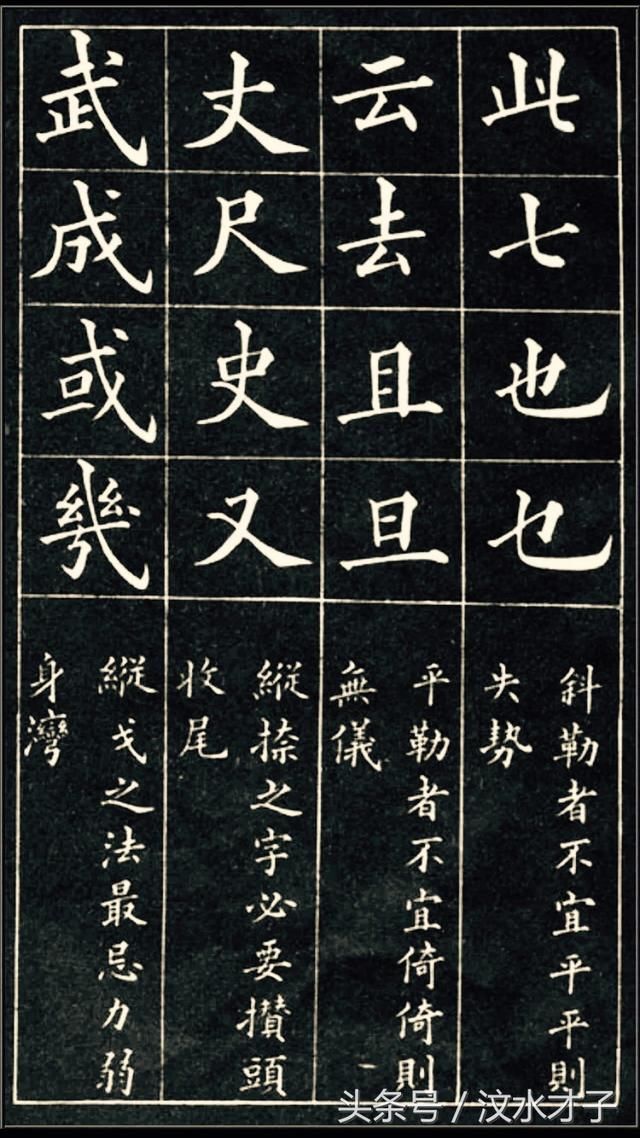 此七也乜
斜勒者不宜平平則
失势
云去且旦
平勒者不宜倚倚則
無儀
丈尺史又
縱捺之字必要攢頭
收尾
武成或幾
縱戈之法最忌力弱
身灣
头条号 / 汶水才子